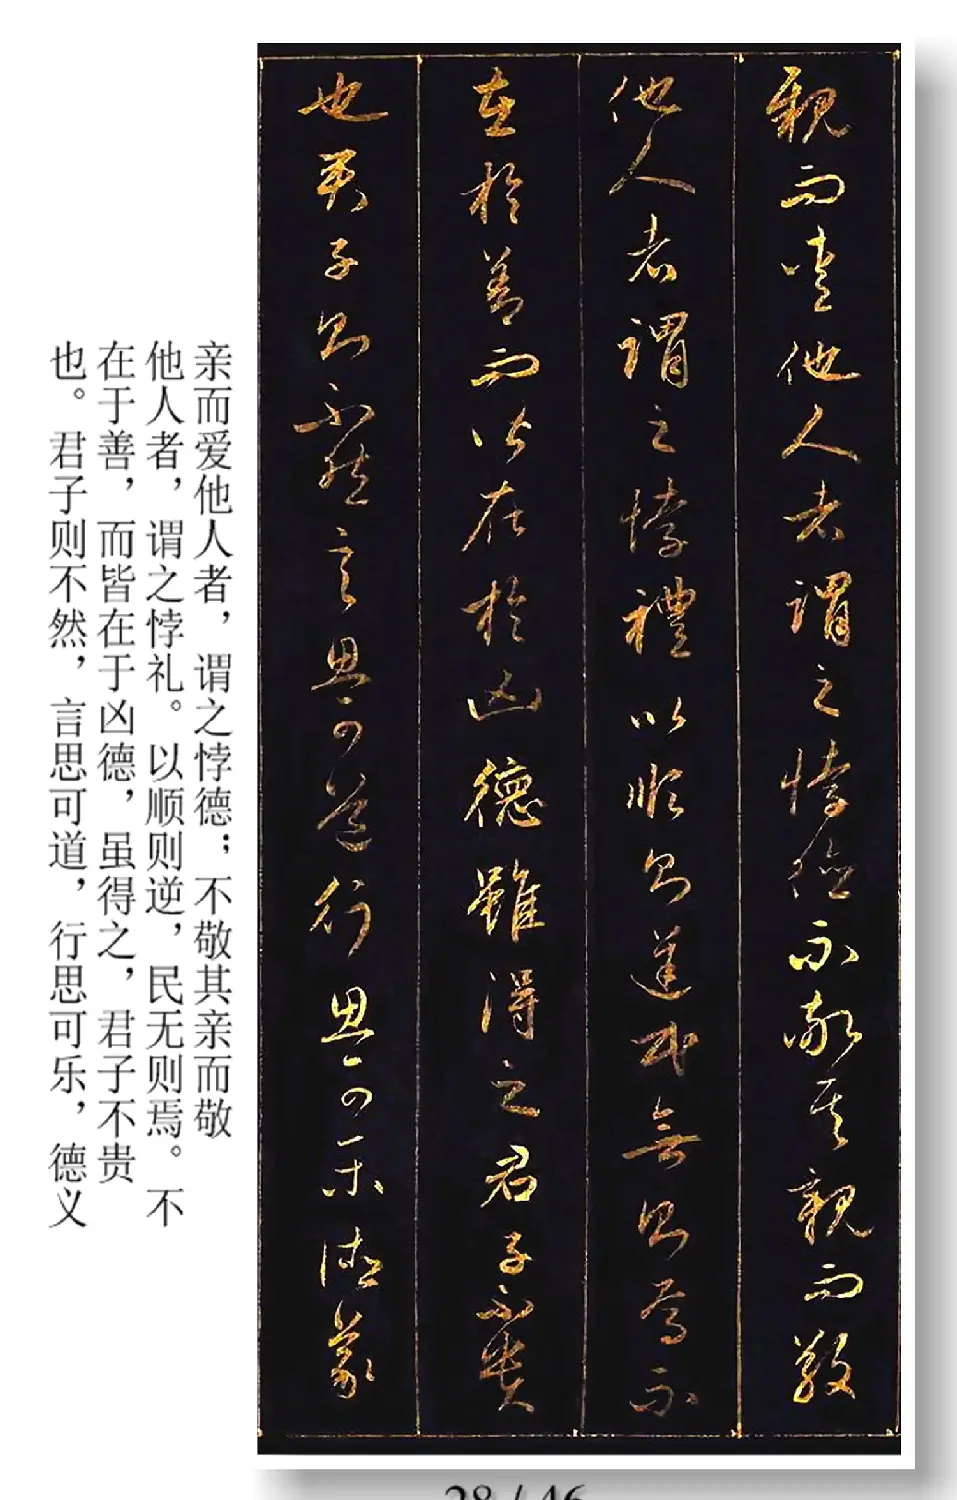 親而愛他人者謂之悖德不敬其親而敬
他人者謂之悖禮以順則逆民無則焉不
在於善而皆在於凶德雖得之君子不貴
也君子則不然言思可道行思可樂德義
亲而爱他人者，谓之悖德；不敬其亲而敬
他人者，谓之悖礼。以顺则逆，民无则焉。不
在于善，而皆在于凶德，虽得之，君子不贵
也。君子则不然，言思可道，行思可乐，德义
28 / 46